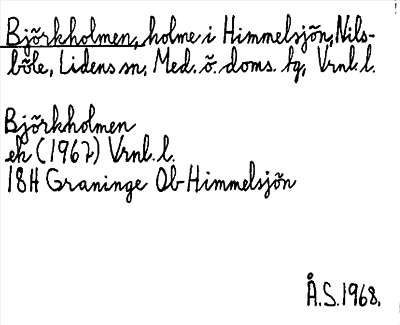 Björkholmen, holme i Himmelsjön, Nils-
böle, Lidens sn, Med. ö. doms. tg, Vrnl. l.
Björkholmen
ek (1967) Vrnl. l.
18H Graninge Ob Himmelsjön
Å.S. 1968.